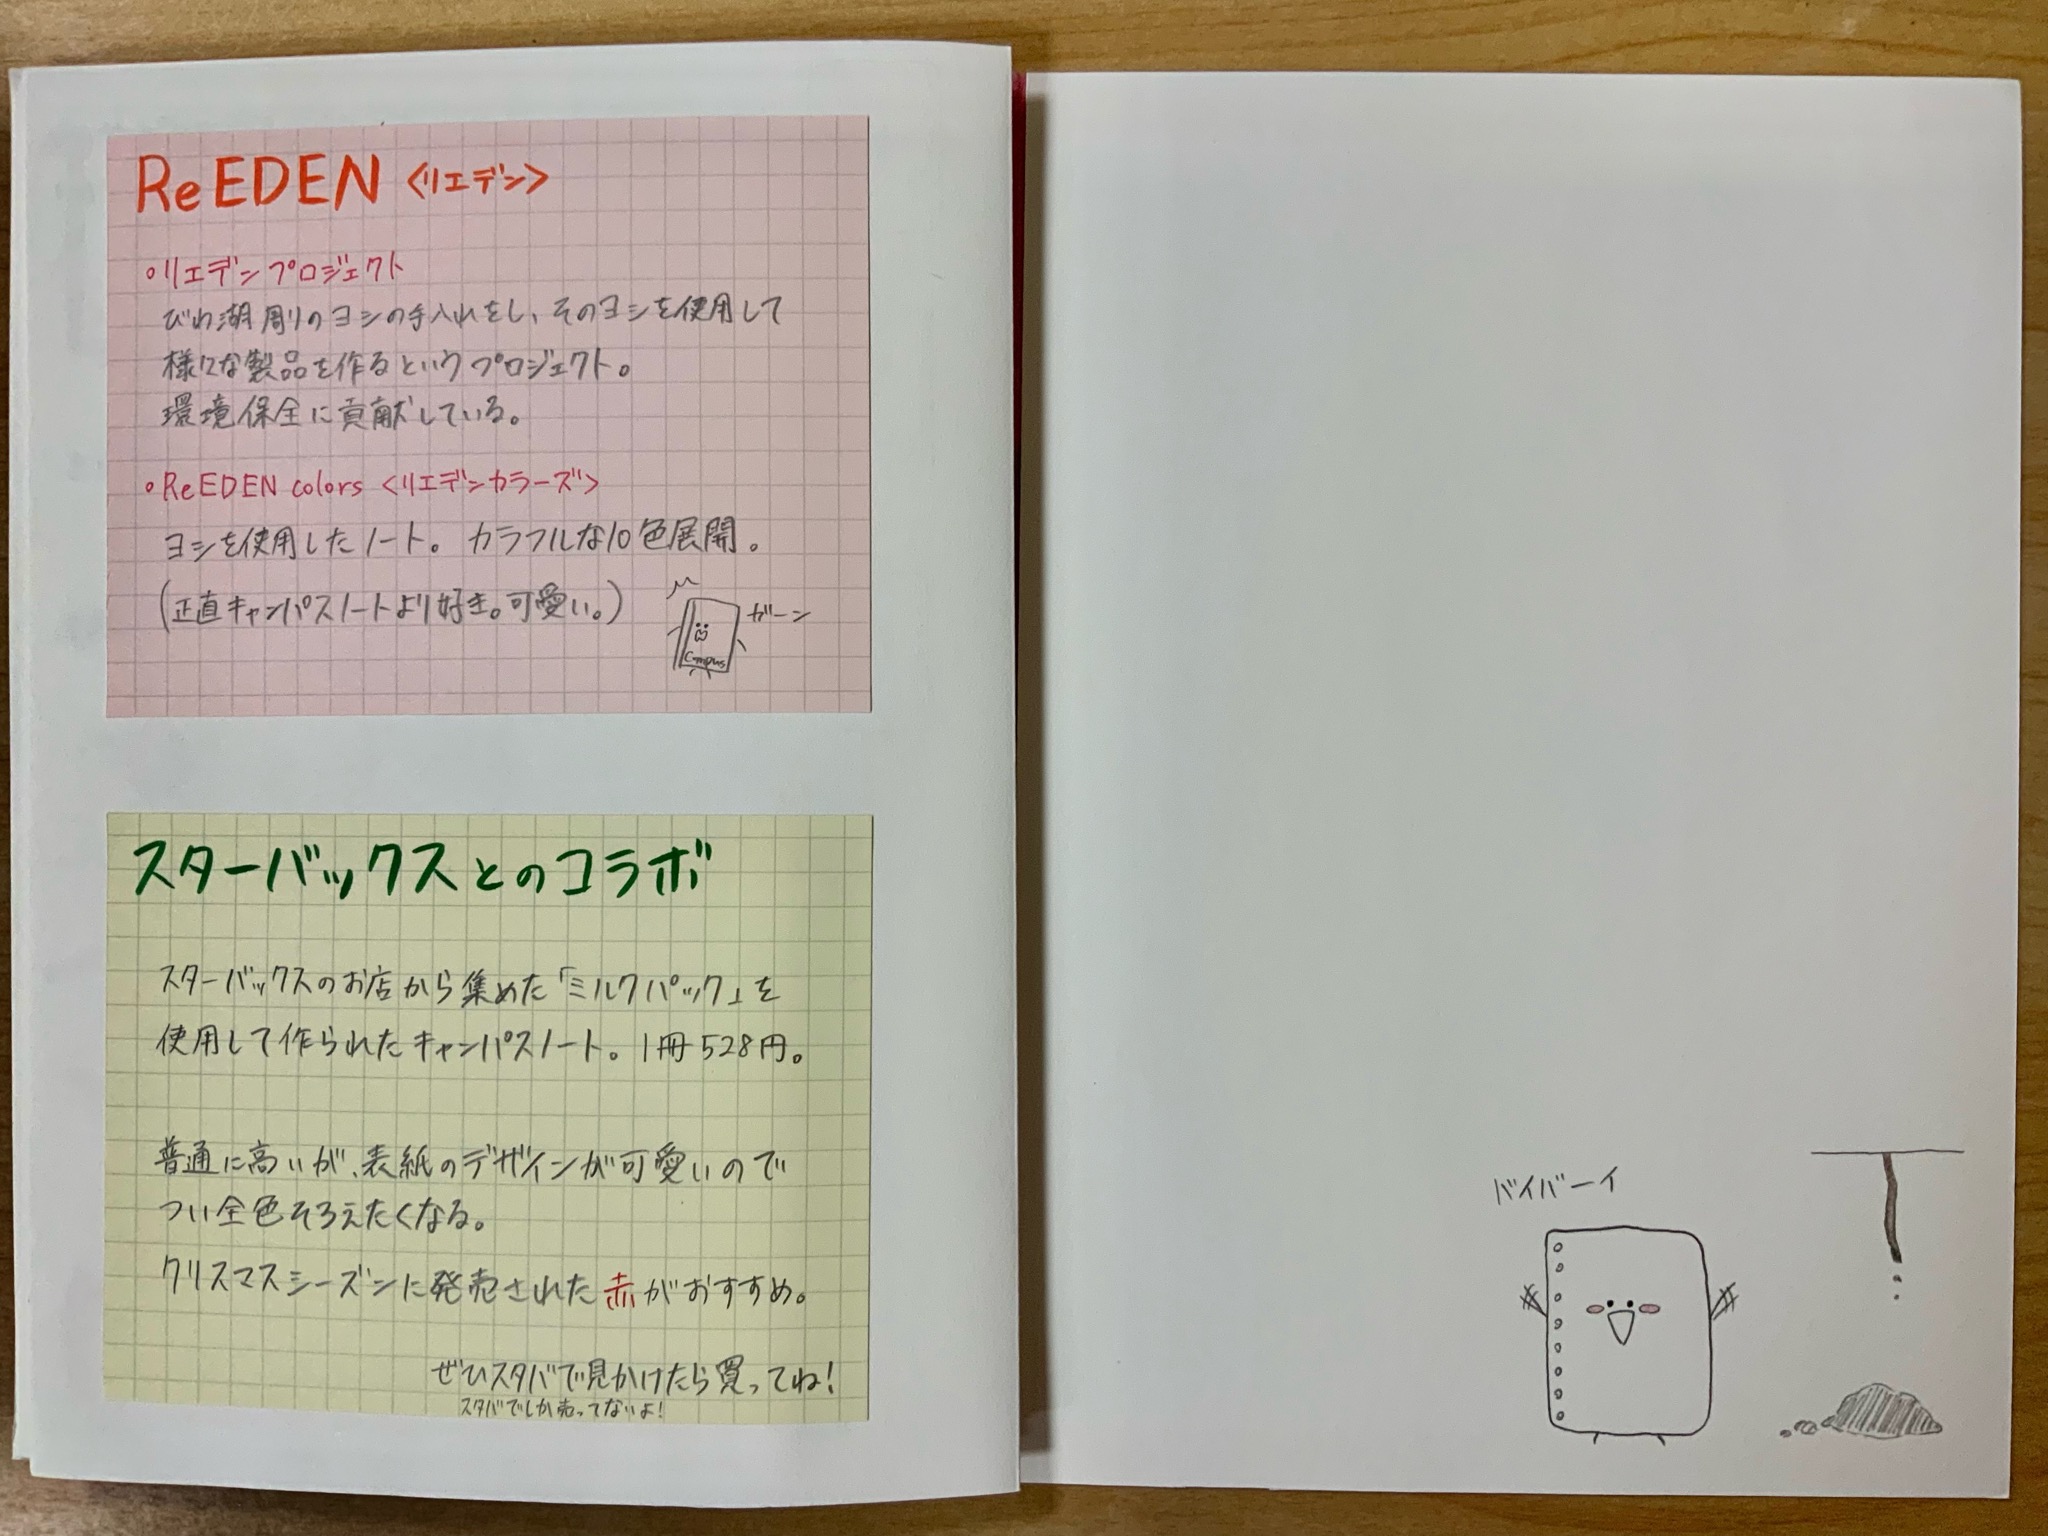 ReEDEN <リエデン>
・リエデンプロジェクト
びわ湖周りのヨシの手入れをし、そのヨシを使用して
様々な製品を作るというプロジェクト。
環境保全に貢献している。
・ReEDEN colors <リエデンカラーズ>
ヨシを使用したノート。カラフルな10色展開。
(正直キャンパスノートより好き。可愛い。)
ガーン
Campus
スターバックスとのコラボ
スターバックスのお店から集めた「ミルクパック」を
使用して作られたキャンパスノート。1冊528円。
普通に高いが、表紙のデザインが可愛いので
つい全色そろえたくなる。
クリスマスシーズンに発売された赤がおすすめ。
ぜひスタバで見かけたら買ってね!
スタバでしか売ってないよ!
バイバーイ